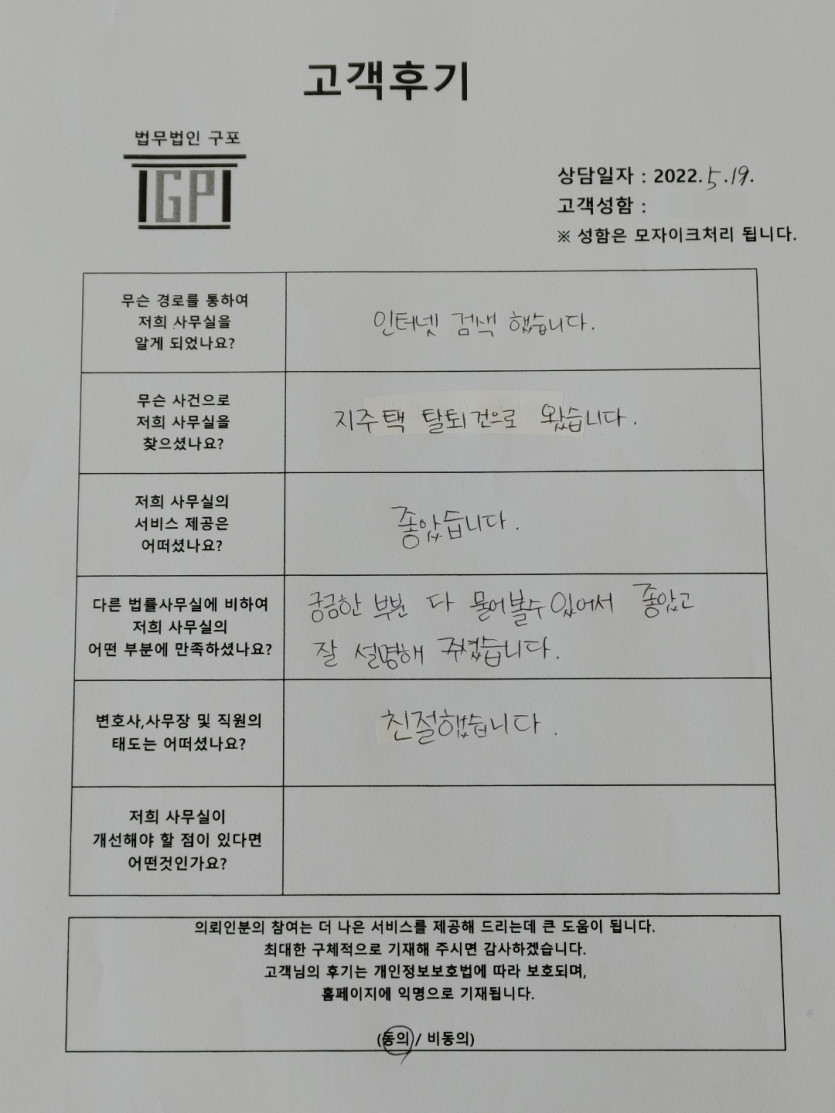 고객후기
법무법인 구포
GP
상담일자 : 2022.5.19.
고객성함 :
※ 성함은 모자이크처리 됩니다.
무슨 경로를 통하여
저희 사무실을
알게 되었나요?
인터넷 검색 했습니다.
무슨 사건으로
저희 사무실을
찾으셨나요?
지주택 탈퇴건으로 왔습니다.
저희 사무실의
서비스 제공은
어떠셨나요?
좋았습니다.
다른 법률사무실에 비하여
저희 사무실의
어떤 부분에 만족하셨나요?
궁금한 부분 다 물어볼수 있어서 좋았고
잘 설명해 주셨습니다.
변호사,사무장 및 직원의
태도는 어떠셨나요?
친절했습니다.
저희 사무실이
개선해야 할 점이 있다면
어떤것인가요?
의뢰인분의 참여는 더 나은 서비스를 제공해 드리는데 큰 도움이 됩니다.
최대한 구체적으로 기재해 주시면 감사하겠습니다.
고객님의 후기는 개인정보보호법에 따라 보호되며,
홈페이지에 익명으로 기재됩니다.
(동의 / 비동의)